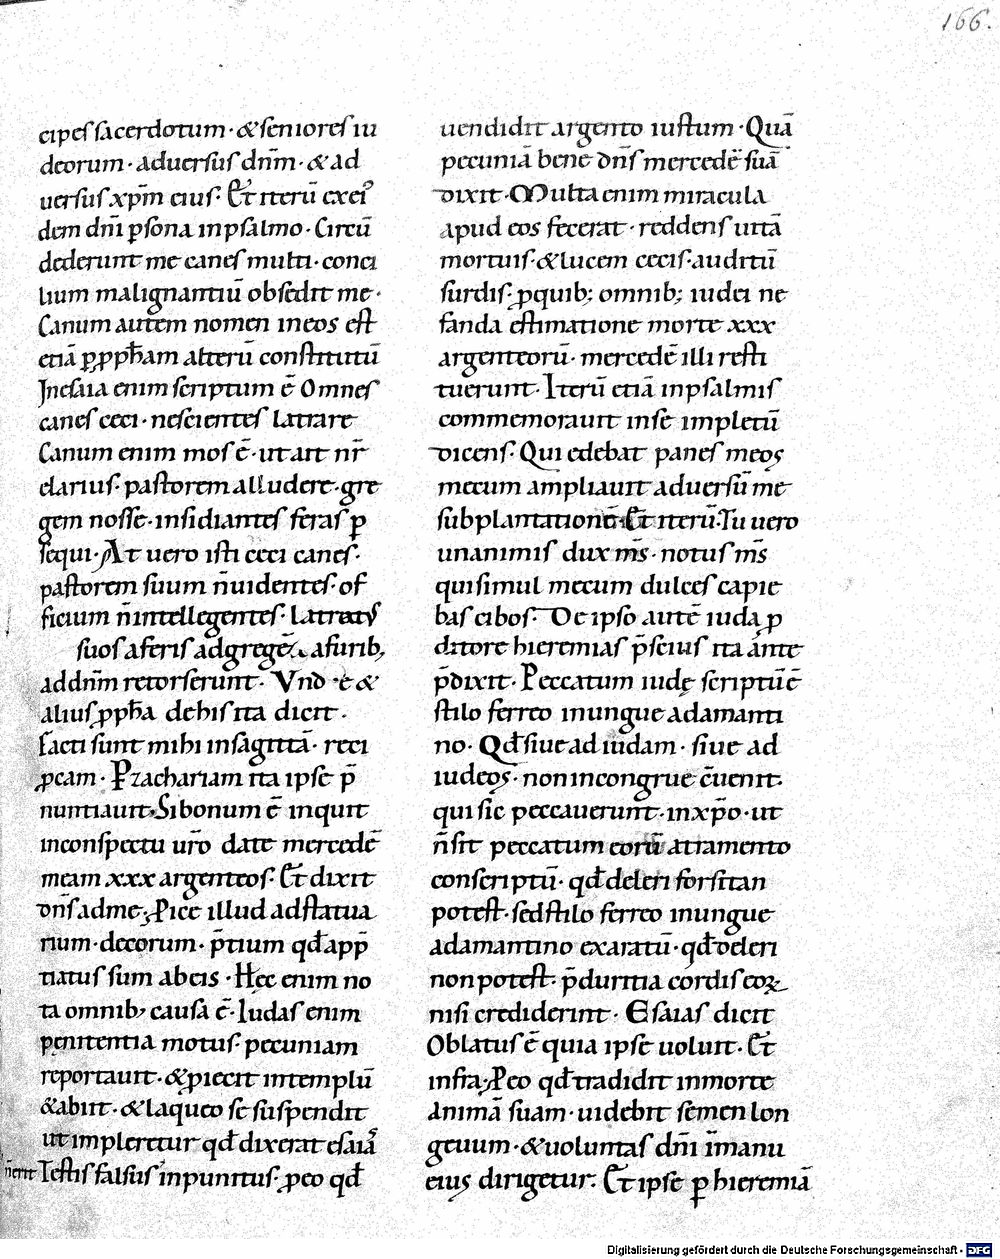 166.
cipes sacerdotum · & seniores iu
deorum · aduersus dn̄m · & ad
uersus xp̄m eius · Et iterū ex ei᷒
dem dn̄i p̱sona inpsalmo · Circū
dederunt me canes multi · conci
lium malignantiū obsedit me ·
Canum autem nomen ineos est
etiā p̱ p̱pham alterū constitutū
Inesaia enim scriptum ē Omnes
canes ceci · nescientes latrare
Canum enim mos ē · ut ait nr̄
elarius · pastorem alludere · gre
gem nosse · insidiantes feras p̱
sequi · At uero isti ceci canes ·
pastorem suum n̄ uidentes · of
ficium n̄ intellegentes · Latratꝰ
suos aferis adgregē & afurib;
addn̄m retorserunt · Vnd· ē &
alius p̱pha dehis ita dicit ·
facti sunt mihi insagittā · reci
p̱cam · P̱ zachariam ita ipse p̄
nuntiauit · Si bonum ē inquit
inconspectu ur̄o date mercedē
meam xxx argenteos · Et dixit
dn̄s adme · P̱ice illud adstatua
rium · decorum · p̄tium qđ app̄
tiatus sum abeis · Hęc enim no
ta omnib; causa ē · Iudas enim
penitentia motus · pecuniam
reportauit · & p̱iecit intemplū
& abiit · & laqueo se suspendit
ut impleretur qđ dixerat esaia
n̄erit Testis falsus inpunitus · p̱eo qđ
uendidit argento iustum · Quā
pecuniā bene dn̄s mercedē suā
dixit · Multa enim miracula
apud eos fecerat · reddens uitā
mortuis · & lucem cecis · auditū
surdis · p̱quib; omnib; iudei ne
fanda estimatione morte xxx
argenteorū · mercedē illi resti
tuerunt · Iterū etiā inpsalmis
commemorauit inse impletū
dicens · Qui edebat panes meos
mecum ampliauit aduersū me
subplantationē · Et iterū · Tu uero
unanimis dux m̄s · notus m̄s
quisimul mecum dulces capie
bas cibos · De ipso autē iuda p̱
ditore hieremias p̄scius ita ante
p̄dixit · Peccatum iudę scriptū ē
stilo ferreo inungue adamanti
no · Qđ siue ad iudam · siue ad
iudeos · non incongrue c̄uenit ·
qui sic peccauerunt · inxp̄o · ut
n̄ sit peccatum eorū atramento
conscriptū · qđ deleri forsitan
potest · sed stilo ferreo inungue
adamantino exaratū · qđ deleri
non potest · p̄ duritia cordis eoꝝ
nisi crediderint · Esaias dicit
Oblatus ē quia ipse uoluit · Et
infra · P̱eo qđ tradidit inmorte
animā suam · uidebit semen lon
geuum · & uoluntas dn̄i īmanu
eius dirigetur : Et ipse p̱ hieremiā
Digitalisierung gefördert durch die Deutsche Forschungsgemeinschaft - DFG